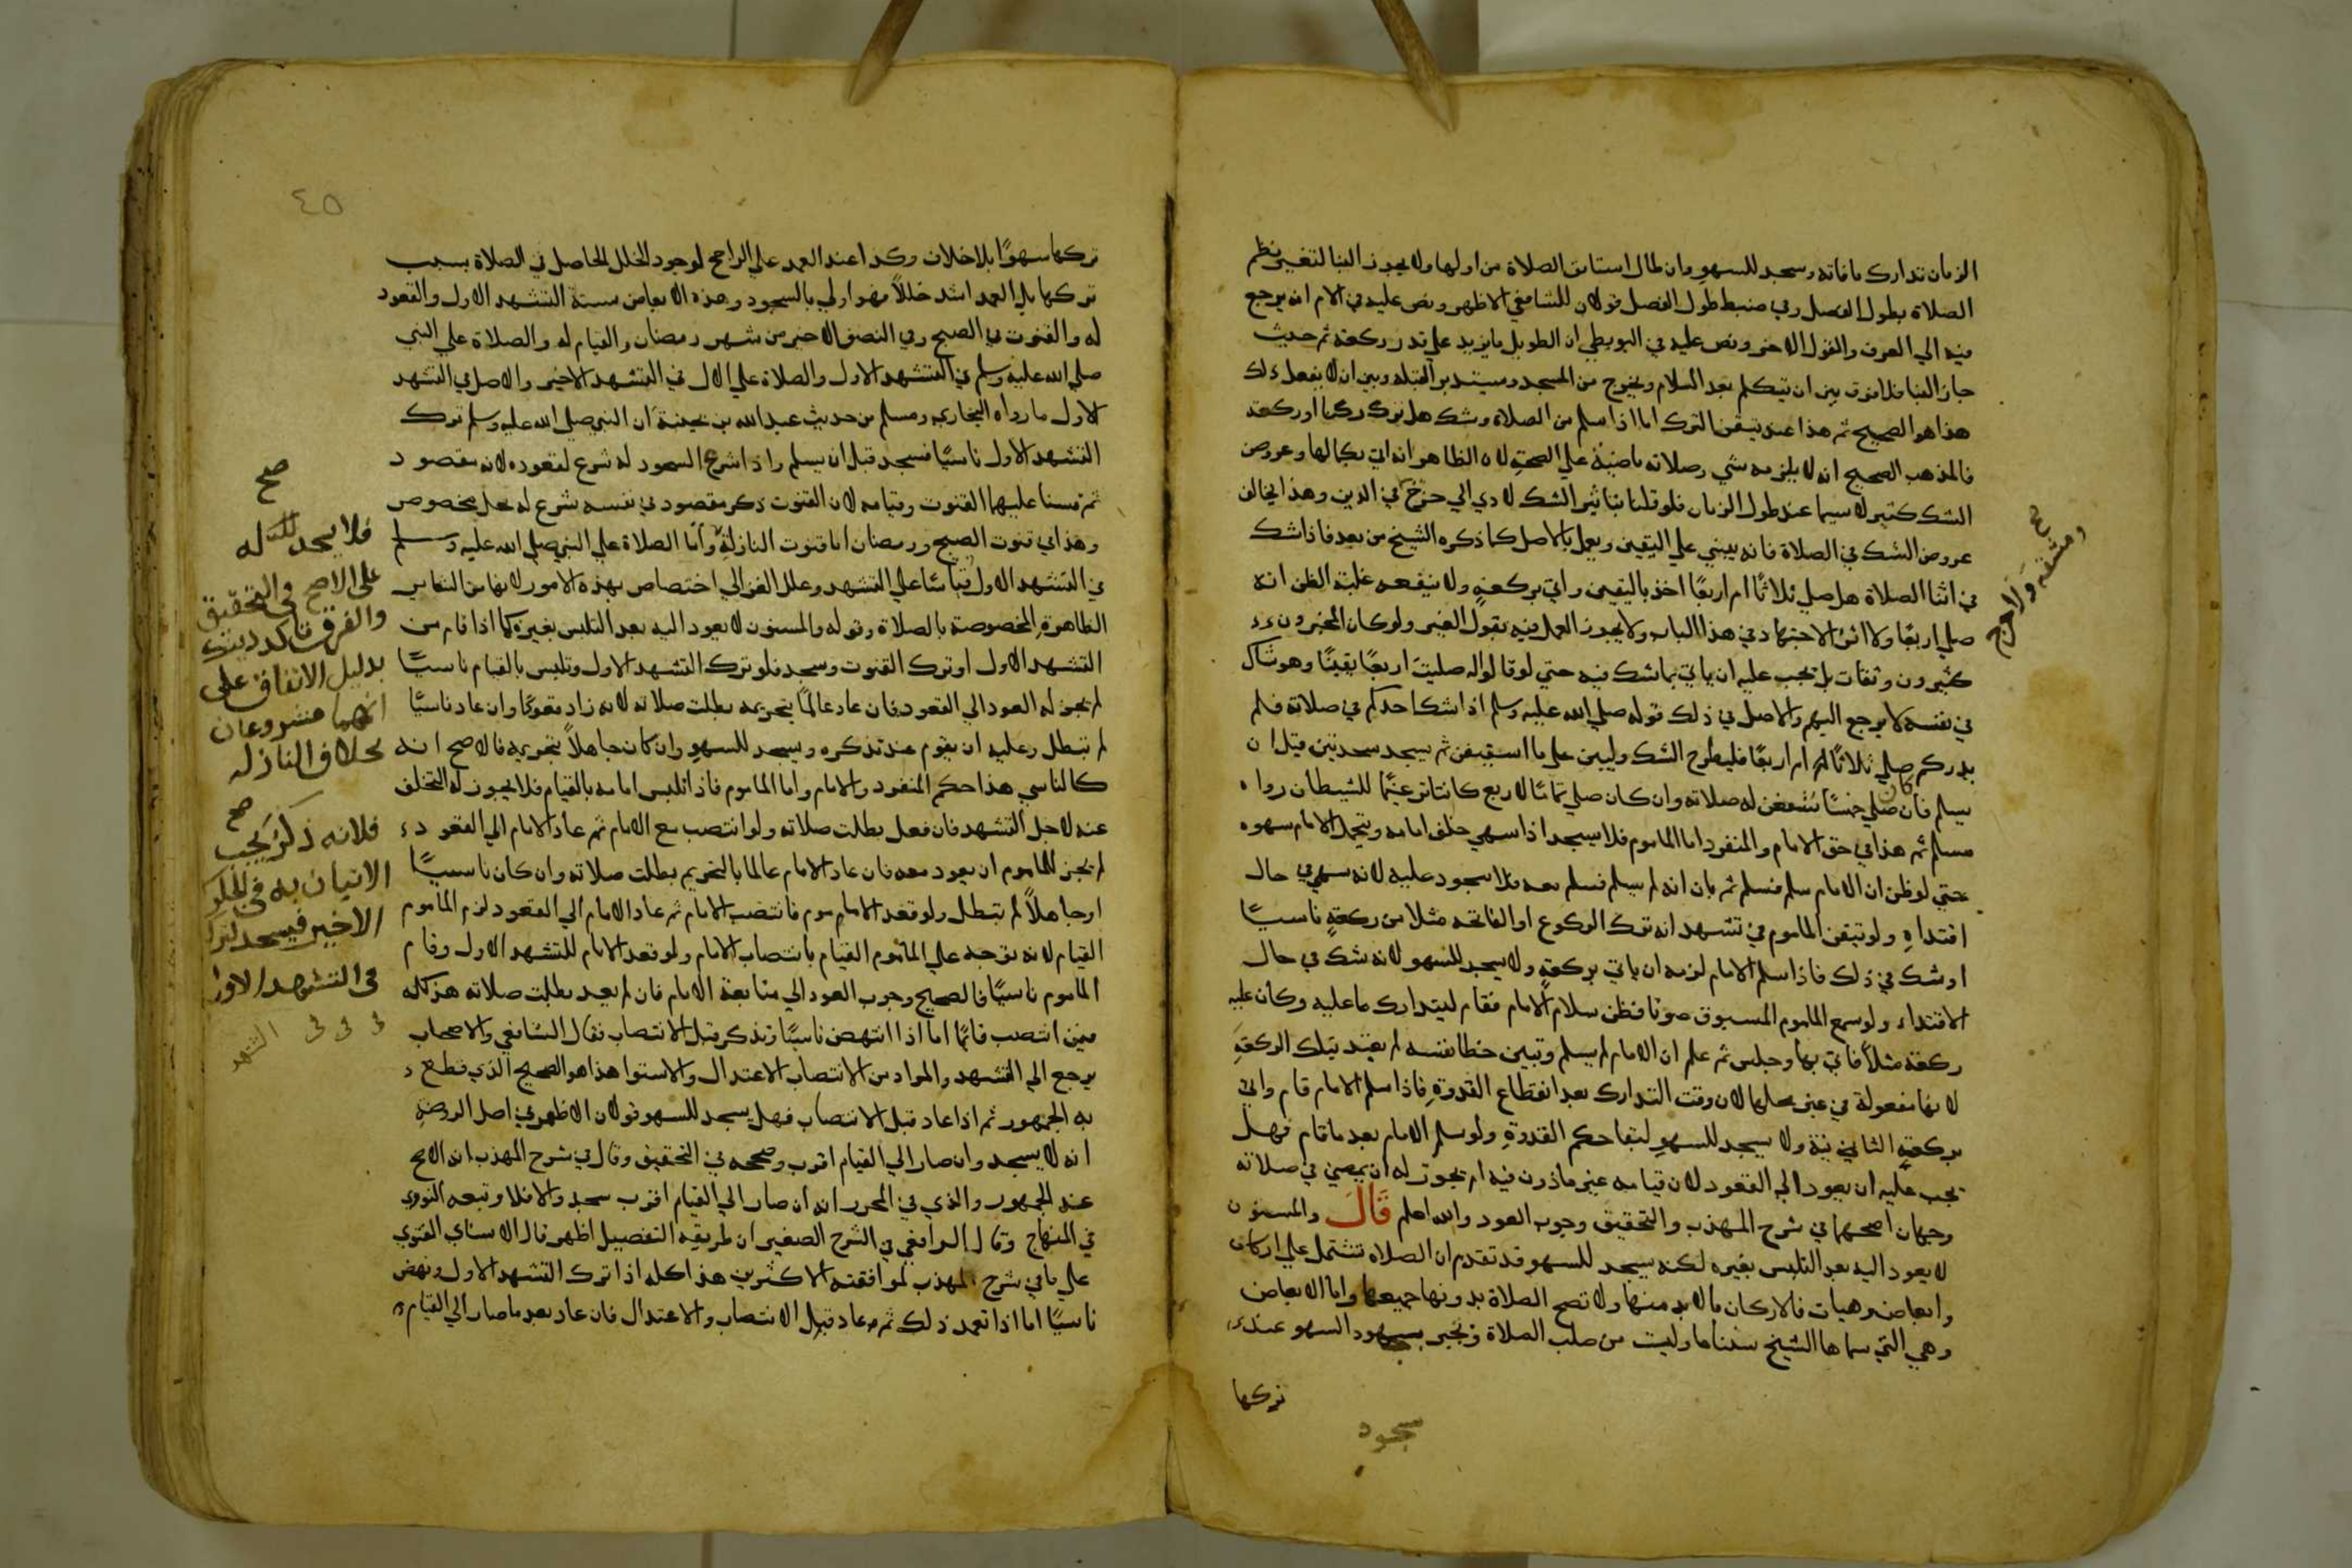 الزمان تدارك ما فاته وسجد للسهو وان طال استانف الصلاة من اولها ولا يجوز البنا لتغير نظم
الصلاة بطول الفصل وفي ضبط طول الفصل قولان للشافعي الاظهر ونص عليه في الام انه يرجع
فيه الي العرف والقول الاخر ونص عليه في البويطي ان الطويل ما يزيد علي قدر ركعة ثم حيث
جاز البنا فلا فرق بين ان يتكلم بعد السلام ويخرج من المسجد ويستدبر القبلة وبين ان لا يفعل ذلك
هذا هو الصحيح ثم هذا عند تيقن الترك اما اذا سلم من الصلاة وشك هل ترك ركنا او ركعة
فالمذهب الصحيح انه لا يلزمه شي وصلاته ماضية علي الصحة لان الظاهر انه اتي بكمالها وعروض
الشك كثير لا سيما عند طول الزمان فلو قلنا بتاثير الشك لادي الي حرج في الدين وهذا يخالف
عروض الشك في الصلاة فانه يبني علي اليقين ويعمل بالاصل كما ذكره الشيخ من بعد فاذا شك
في اثنا الصلاة هل صلي ثلاثا ام اربعا اخذ باليقين واتي بركعة ولا ينفعه غلبة الظن انه
صلي اربعا ولا اثر للاجتهاد في هذا الباب ولا يجوز العمل فيه بقول الغير ولو كان المخبرون
كثيرون وثقات بل يجب عليه ان ياتي بما شك فيه حتي لو قالوا له صليت اربعا يقينا وهو شاك
في نفسه لا يرجع اليهم والاصل في ذلك قوله صلي الله عليه وسلم اذا شك احدكم في صلاته فلم
يدركم صلي ثلاثا ام اربعا فليطرح الشك وليبن علي ما استيقن ثم يسجد سجدتين قبل ان
يسلم فان كان صلي خمسا شفعن له صلاته وان كان صلي تماما لاربع كانتا ترغيما للشيطان رواه
مسلم ثم هذا في حق الامام والمنفرد اما الماموم فلا يسجد اذا سهي خلف امامه ويتحمل الامام سهوه
حتي لو ظن ان الامام سلم فسلم ثم بان انه لم يسلم فسلم معه فلا سجود عليه لانه سهي في حال
اقتداه ولو تيقن الماموم في تشهد انه ترك الركوع او الفاتحة مثلا من ركعة ناسيا
او شك في ذلك فاذا سلم الامام لزمه ان ياتي بركعة ولا يسجد للسهو لانه شك في حال
الاقتداء ولو سمع الماموم المسبوق صوتا فظن سلام الامام فقام ليتدارك ما عليه وكان عليه
ركعة مثلا فاتي بها وجلس ثم علم ان الامام لم يسلم وتبين خطا نفسه لم يعتد بتلك الركعة
لانها مفعولة في غير محلها لان وقت التدارك بعد انقطاع القدوة فاذا سلم الامام قام واتي
بركعة الثانية ولا يسجد للسهو لبقا حكم القدوة ولو سلم الامام بعد ما قام فهل
يجب عليه ان يعود الي القعود لان قيامه غير ماذون فيه ام يجوز له ان يمضي في صلاته
وجهان اصحهما في شرح المهذب والتحقيق وجوب العود والله اعلم قال والمسنون
لا يعود اليه بعد التلبس بغيره لكنه يسجد للسهو قد تقدم ان الصلاة تشتمل علي اركان
وابعاض وهيات فالاركان ما لا بد منها ولا تصح الصلاة بدونها جميعها واما الابعاض
وهي التي سماها الشيخ سننا ما وليت من صلب الصلاة وتجبر بسجود السهو عند
تركها
سجود
صح
ومشقة
٤٥
تركها سهوا بلا خلاف وكذا عند العمد علي الراجح لوجود الخلل الحاصل في الصلاة بسبب
تركها بل العمد اشد خللا فهو اولي بالسجود وهذه الابعاض ستة التشهد الاول والقعود
له والقنوت في الصبح وفي النصف الاخير من شهر رمضان والقيام له والصلاة علي النبي
صلي الله عليه وسلم في التشهد الاول والصلاة علي الال في التشهد الاخير والاصل في التشهد
الاول ما رواه البخاري ومسلم من حديث عبد الله بن بحينة ان النبي صلي الله عليه وسلم ترك
التشهد الاول ناسيا فسجد قبل ان يسلم واذا شرع السجود له شرع لقعوده لانه مقصود
ثم قسنا عليهما القنوت وقيامه لان القنوت ذكر مقصود في نفسه شرع له محل مخصوص
وهذا في قنوت الصبح ورمضان اما قنوت النازلة واما الصلاة علي النبي صلي الله عليه وسلم
في التشهد الاول قياسا علي التشهد وعلل الغزالي اختصاص بهذه الامور لانها من الشعاير
الظاهرة المخصوصة بالصلاة وقوله والمسنون لا يعود اليه بعد التلبس بغيره كما اذا قام من
التشهد الاول او ترك القنوت وسجد فلو ترك التشهد الاول وتلبس بالقيام ناسيا
لم يجز له العود الي القعود فان عاد عالما بتحريمه بطلت صلاته لانه زاد قعودا وان عاد ناسيا
لم تبطل وعليه ان يقوم عند تذكره ويسجد للسهو وان كان جاهلا بتحريمه فالاصح انه
كالناسي هذا حكم المنفرد والامام واما الماموم فاذا تلبس امامه بالقيام فلا يجوز له التخلف
عنه لاجل التشهد فان فعل بطلت صلاته ولو انتصب مع الامام ثم عاد الامام الي القعود
لم يجز للماموم ان يعود معه فان عاد الامام عالما بالتحريم بطلت صلاته وان كان ناسيا
او جاهلا لم تبطل ولو قعد الماموم فانتصب الامام ثم عاد الامام الي القعود لزم الماموم
القيام لانه توجه علي الماموم القيام بانتصاب الامام ولو قعد الامام للتشهد الاول وقام
الماموم ناسيا فالصحيح وجوب العود الي متابعة الامام فان لم يعد بطلت صلاته هذا كله
فيمن انتصب قائما اما اذا انتهض ناسيا وتذكر قبل الانتصاب فقال الشافعي والاصحاب
يرجع الي التشهد والمراد من الانتصاب الاعتدال والاستوا هذا هو الصحيح الذي قطع
به الجمهور ثم اذا عاد قبل الانتصاب فهل يسجد للسهو قولان الاظهر في اصل الروضة
انه لا يسجد وان صار الي القيام اقرب وصححه في التحقيق وقال في شرح المهذب انه الاصح
عند الجمهور والذي في المحرر انه ان صار الي القيام اقرب سجد والا فلا وتبعه النووي
في المنهاج وقال الرافعي في الشرح الصغير ان طريقه التفصيل اظهر قال الاسناي الفتوي
علي ما في شرح المهذب لموافقته الاكثرين هذا كله اذا ترك التشهد الاول ونهض
ناسيا اما اذا تعمد ذلك ثم عاد قبل الانتصاب والاعتدال فان عاد بعد ما صار الي القيام
صح
فلا يسجد لتركه
على الاصح في التحقيق
والفرق تاكد ذينك
بدليل الاتفاق على
انهما مشروعان
بخلاف النازلة
صح
فلانه ذكر يجب
الاتيان به في الجلوس
الاخير فيسجد لتركه
في التشهد الاول
التشهد